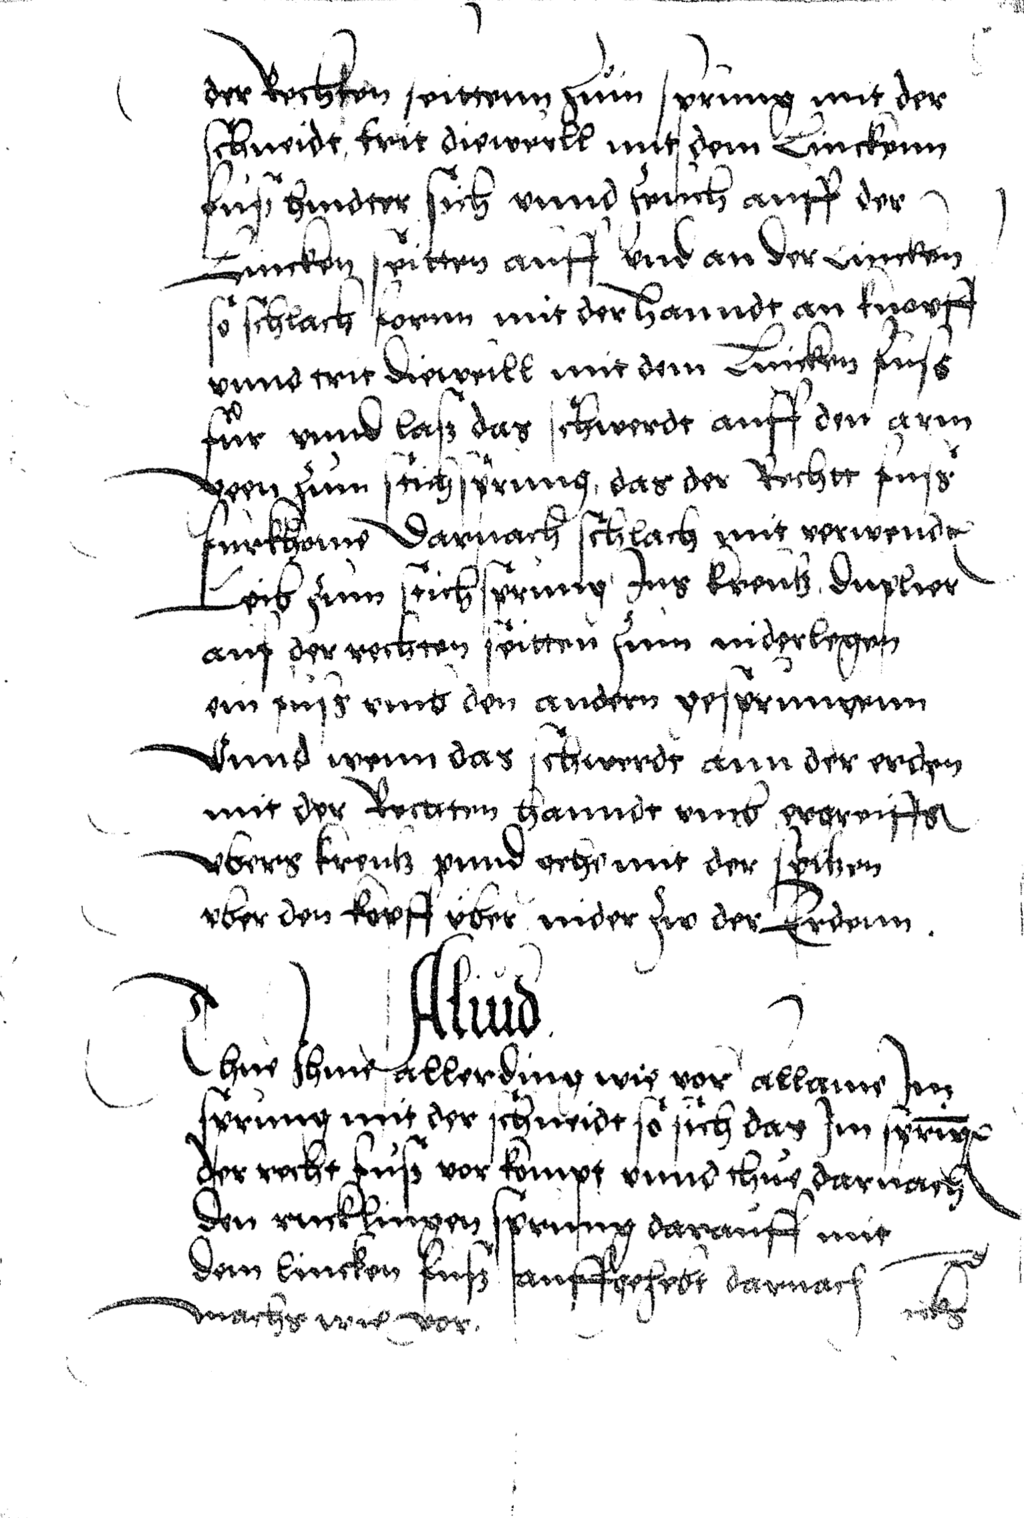 der Rechten seittenn zum sprung mit der
schneidt, trit dieweill mit dem Linckenn
fuß hindter sich vnnd zeuch auff der
Lincken seitten auff vnd an der Lincken
so schlach fornn mit der Hanndt an knopff
vnnd trit dieweill mit dem Lincken fuss
für vnnd laß das schwerdt auff den arm
geen zum stichsprung, das der Rechtt fuss
fürkhome Darnach schlach mit verwendt
Leib zum stichsprung Ins kreutz, duplier
auf der rechten seitten zum niderlegen
ein fuss vmb den andern gesprungenn
Vnnd wenn das schwerdt ann der erden
mit der Rechten hanndt vmb ergreiffs
vbers kreutz vnnd gehe mit der spitzen
vber den kopff vber nider zw der Erdenn.
Aliud.
Thue Ihme allerding wie vor allaine Im
sprung mit der schneidt so sich das Im spring
der recht fuß vor kompt vnnd thue darnach
den rucklingen sprung darauff mit
dem lincken fuß auffgehebt darnach
machs wie vor.